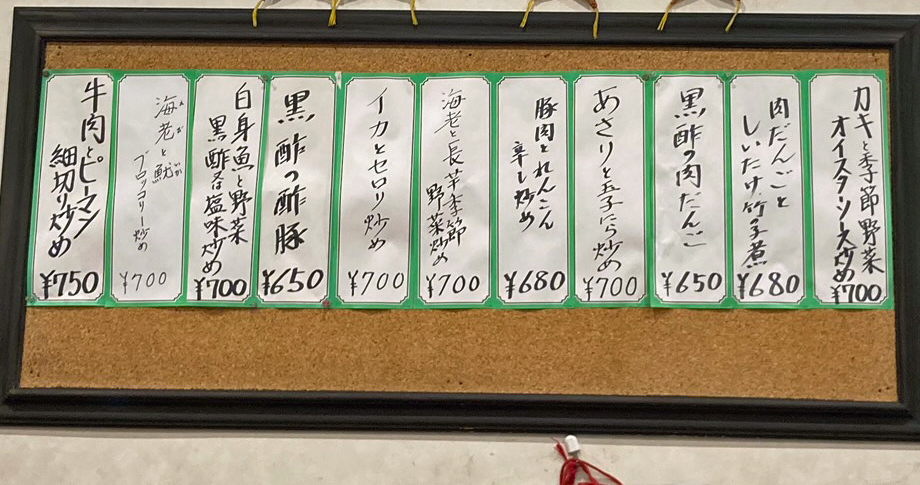 カキと季節野菜
オイスターソース炒め
¥700
肉だんごと
しいたけ竹の子煮
¥680
黒酢の肉だんご
¥650
あさりと玉子にら炒め
¥700
豚肉とれんこん
辛し炒め
¥680
海老と長芋季節
野菜炒め
¥700
イカとセロリ炒め
¥700
黒酢の酢豚
¥650
白身魚と野菜
黒酢又は塩味炒め
¥700
海老と
ブロッコリー炒め
¥700
牛肉とピーマン
細切り炒め
¥750